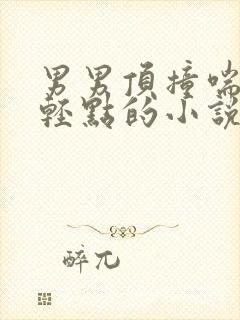 男男頂撞喘
輕點的小說
醉兀